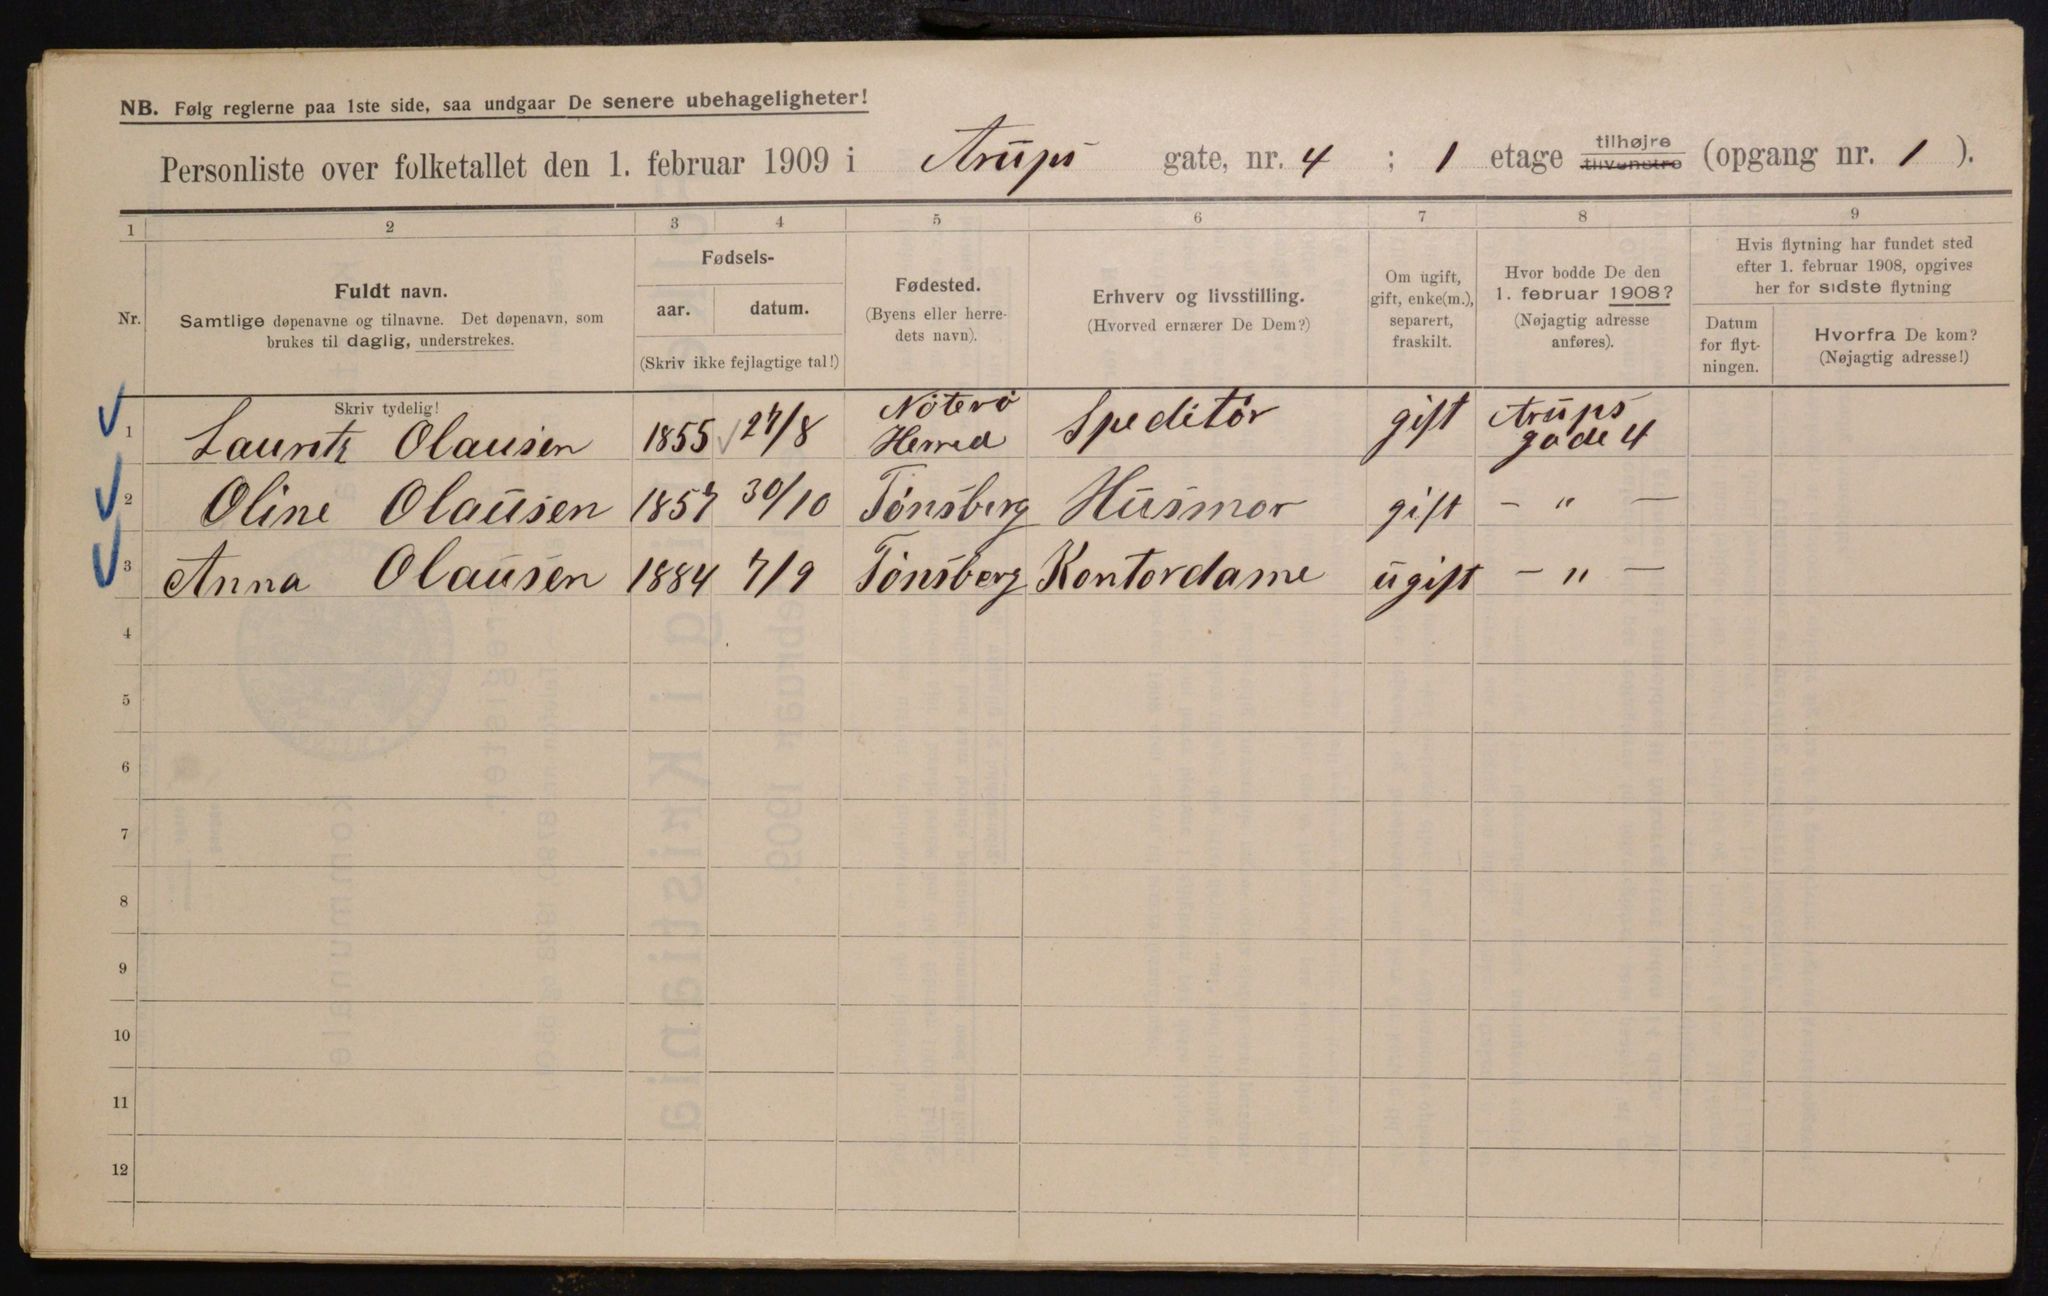 NB. Følg reglerne paa 1ste side, saa undgaar De senere ubehageligheter!
Personliste over folketallet den 1. februar 1909 i Arups gate, nr. 4 ; 1 etage tilhøjre tilvenstre (opgang nr. 1 ).
1 2 3 4 5 6 7 8 9
Nr.
Fuldt navn.
Samtlige døpenavne og tilnavne. Det døpenavn, som
brukes til daglig, understrekes.
Skriv tydelig!
Fødsels-
aar. datum.
(Skriv ikke fejlagtige tal!)
Fødested.
(Byens eller herre-
dets navn).
Erhverv og livsstilling.
(Hvorved ernærer De Dem?)
Om ugift,
gift, enke(m.),
separert,
fraskilt.
Hvor bodde De den
1. februar 1908?
(Nøjagtig adresse
anføres).
Hvis flytning har fundet sted
efter 1. februar 1908, opgives
her for sidste flytning
Datum
for flyt-
ningen.
Hvorfra De kom?
(Nøjagtig adresse!)
1 Lauritz Olausen 1855 27/8 Nøterø Herred Speditør gift Arups gade 4
2 Oline Olausen 1857 30/10 Tønsberg Husmor gift – " –
3 Anna Olausen 1884 7/9 Tønsberg Kontordame ugift – " –
4
5
6
7
8
9
10
11
12